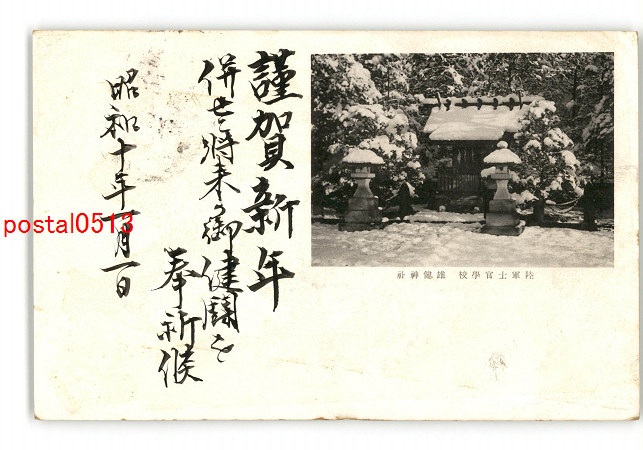 謹賀新年
併せて将来の御健闘を
奉祈候
昭和十年一月一日
陸軍士官學校 雄健神社
postal0513